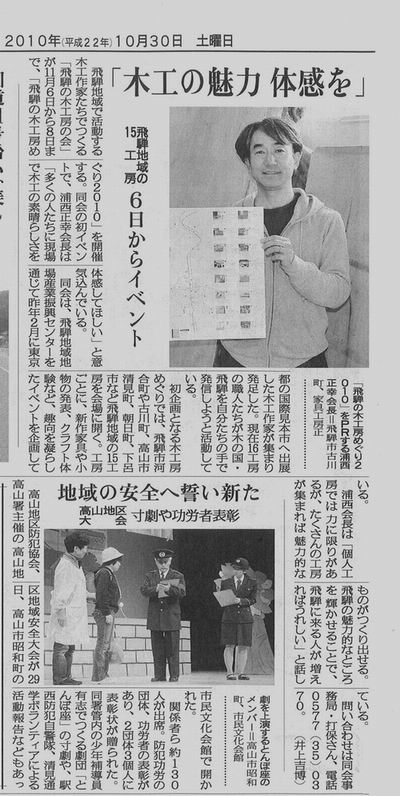 2010年(平成22年)10月30日 土曜日
「木工の魅力 体感を」
飛騨地域の
15工房
6日からイベント
飛騨地域で活動する
木工作家たちでつくる
「飛騨の木工房の会」
が11月6日から8日ま
で、「飛騨の木工房め
ぐり2010」を開催
する。同会の初イベン
トで、浦西正幸会長は
「多くの人たちに現場
で木工の素晴らしさを
体感してほしい」と意
気込んでいる。
同会は、飛騨地域地
場産業振興センターを
通じて昨年2月に東京
都の国際見本市へ出展
した木工作家が集まり
発足した。現在16工房
の職人たちが木の国・
飛騨を自分たちの手で
発信しようと活動して
いる。
初企画となる木工房
めぐりでは、飛騨市河
合町や古川町、高山市
清見町、朝日町、下呂
市など飛騨地域の15工
房を会場に開く。工房
ごとに、新作家具や小
物の発表、クラフト体
験など、趣向を凝らし
たイベントを企画して
いる。
浦西会長は「個人工
房では力に限りがあ
るが、たくさんの工房
が集まれば魅力的な
ものがつくり出せる。
飛騨の魅力的なところ
を輝かせることで、
飛騨に来る人が増え
ればうれしい」と話し
ている。
問い合わせは同会事
務局・打保さん、電話
0577(35)03
70。(井上吉博)
「飛騨の木工房めぐり2
010」をPRする浦西
正幸会長=飛騨市古川
町、家具工房正
地域の安全へ誓い新た
高山地区
大会
寸劇や功労者表彰
高山地区防犯協会、
高山署主催の高山地
区地域安全大会が29
日、高山市昭和町の
市民文化会館で開か
れた。
関係者ら約130
人が出席。防犯功労の
団体、功労者の表彰が
あり、2団体3個人に
表彰状が贈られた。
同署管内の少年補導員
有志でつくる劇団「と
んぼ座」の寸劇や、駅
西防犯自警隊、清見通
学ボランティアによる
活動報告などもあっ
劇を上演するとんぼ座の
メンバー=高山市昭和
町、市民文化会館